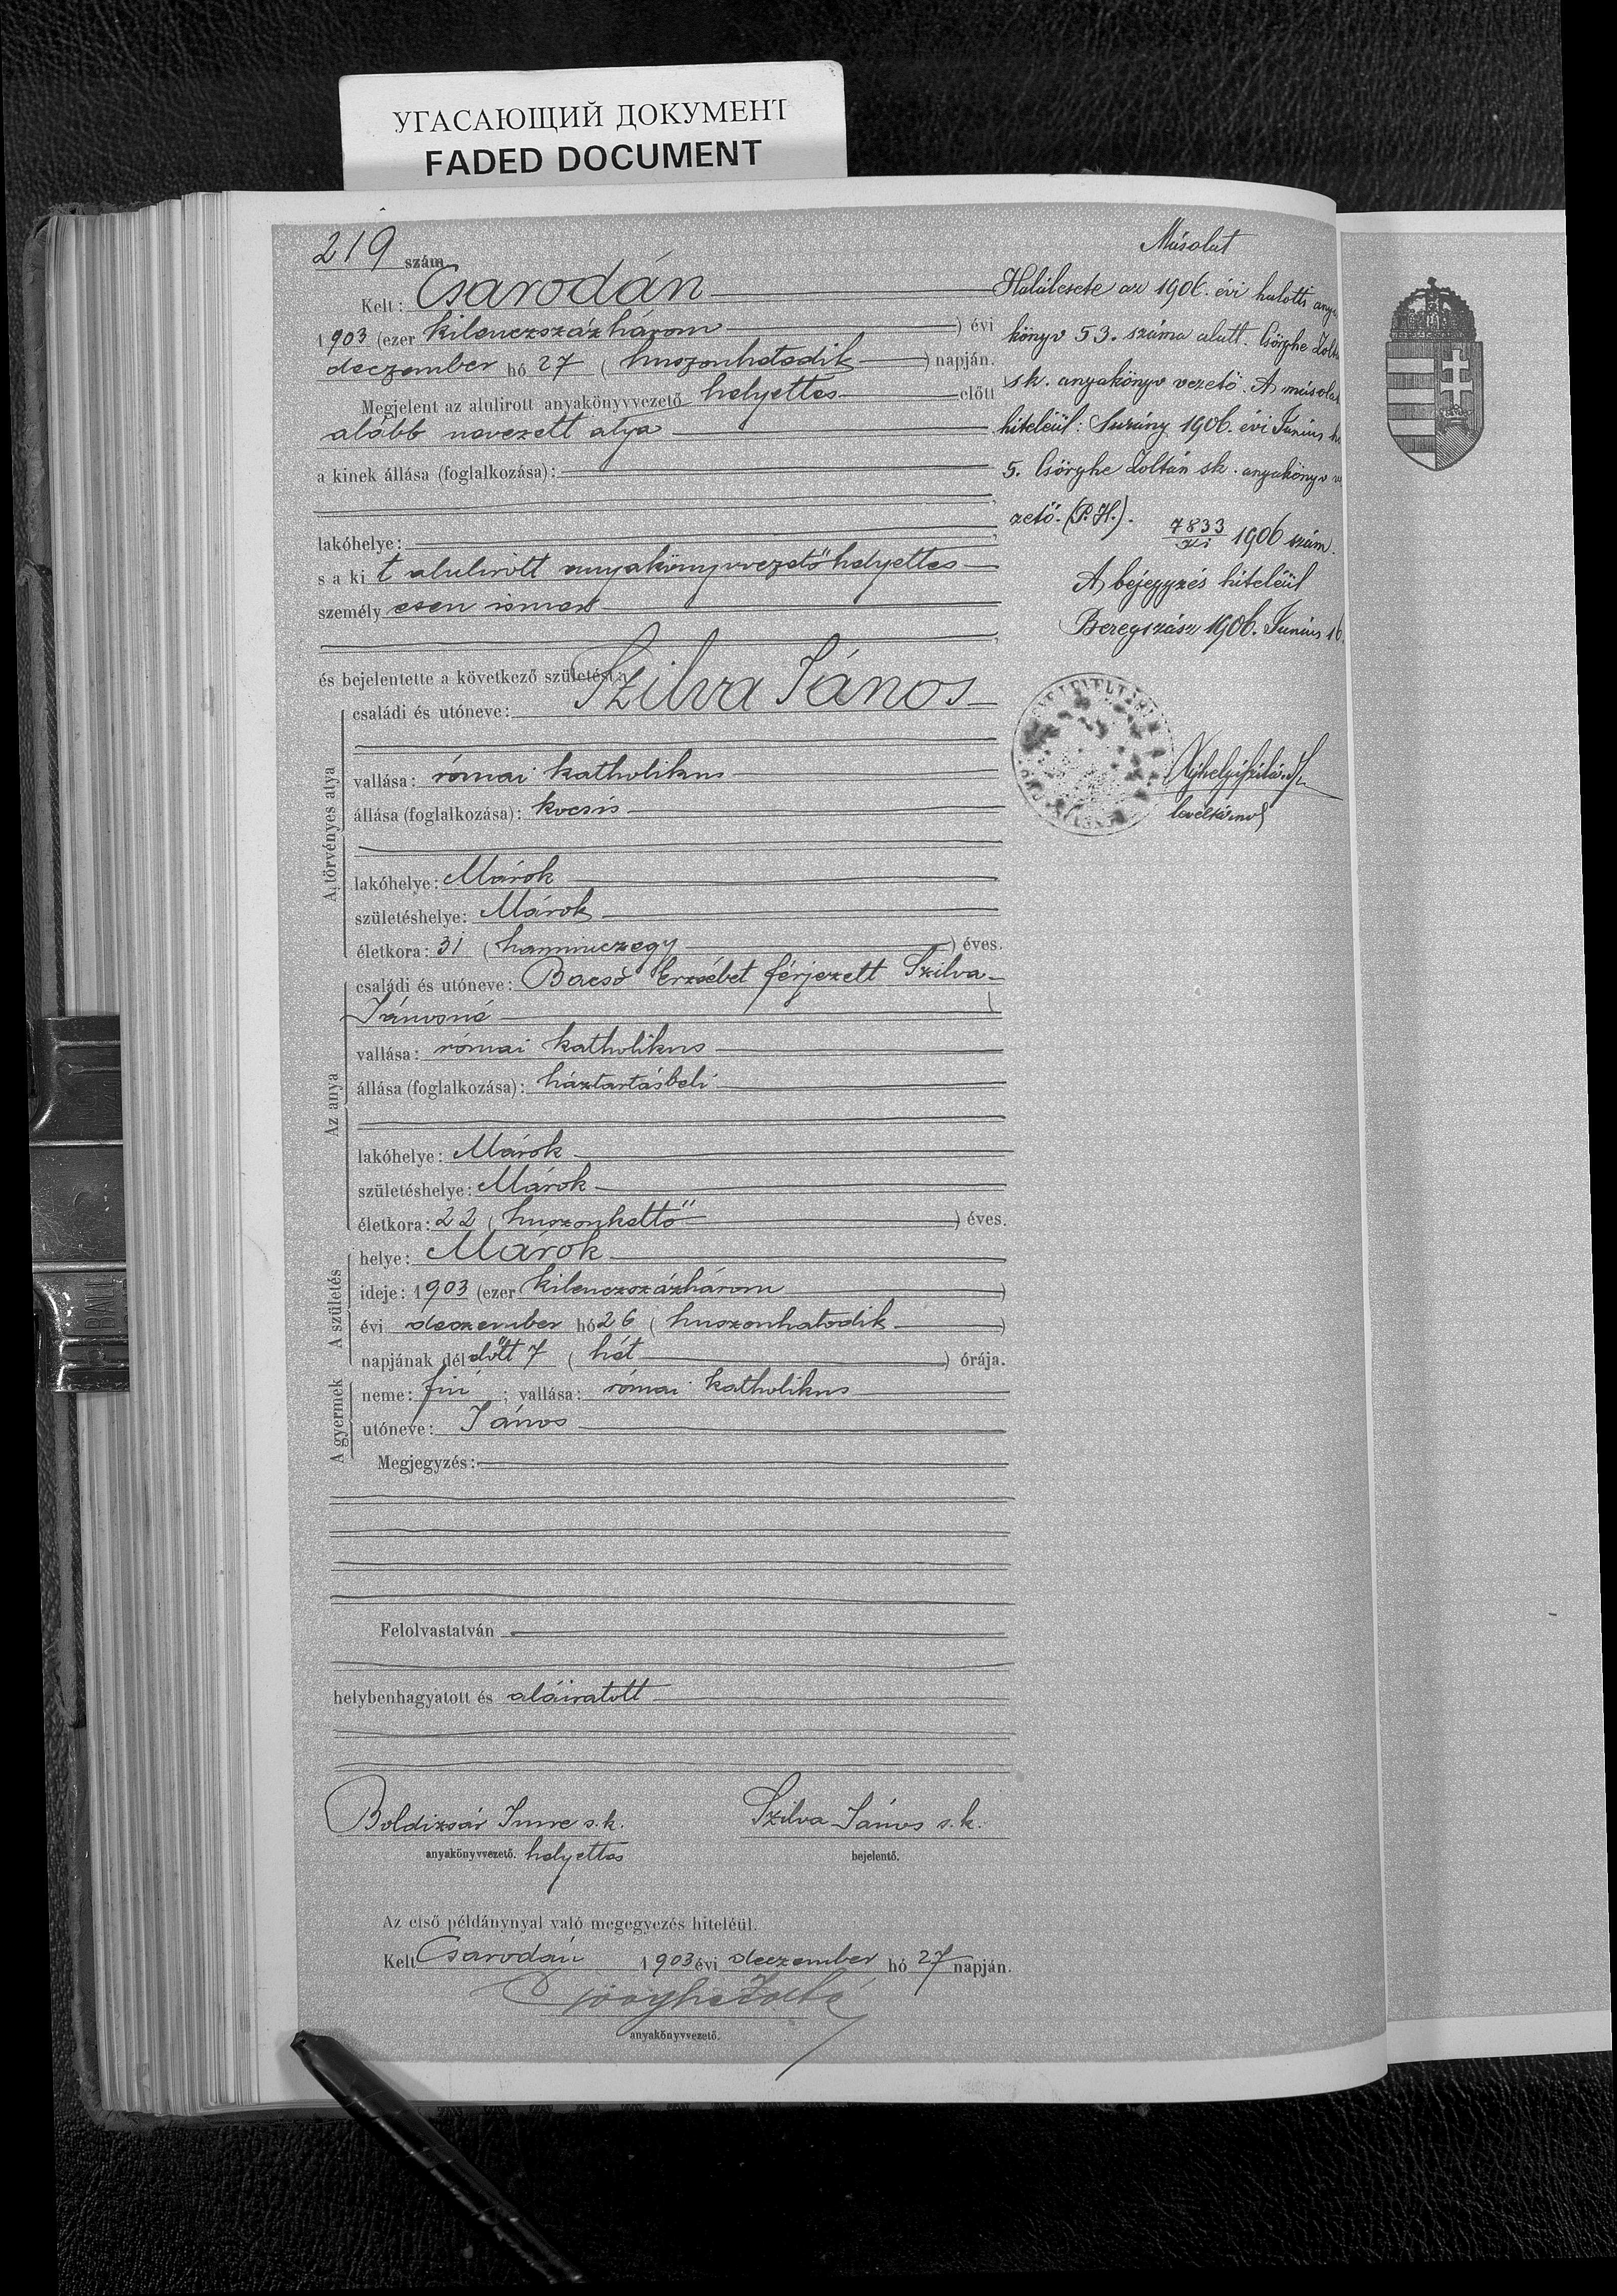 УГАСАЮЩИЙ ДОКУМЕНТ
FADED DOCUMENT
219 szám
Kelt: Csarodán
1903 (ezer kilenczszázhárom) évi
deczember hó 27 (huszonhatodik) napján.
Megjelent az alulirott anyakönyvvezető helyettes előtt
alább nevezett atya
a kinek állása (foglalkozása):
lakóhelye:
s a kit alulirott anyakönyvvezető helyettes
személyesen ismer
és bejelentette a következő születést:
A törvényes atya
családi és utóneve: Szilva János
vallása: római katholikus
állása (foglalkozása): kocsis
lakóhelye: Márok
születéshelye: Márok
életkora: 31 (harminczegy) éves.
Az anya
családi és utóneve: Bacsó Erzsébet férjezett Szilva
Jánosné
vallása: római katholikus
állása (foglalkozása): háztartásbeli
lakóhelye: Márok
születéshelye: Márok
életkora: 22 (huszonkettő) éves.
A születés
helye: Márok
ideje: 1903 (ezer kilenczszázhárom)
évi deczember hó 26 (huszonhatodik)
napjának délelőtt 7 (hét) órája.
A gyermek
neme: fiú; vallása: római katholikus
utóneve: János
Megjegyzés:
Felolvastatván
helybenhagyatott és aláiratott
Boldizsár Imre s.k. Szilva János s.k.
anyakönyvvezető. helyettes bejelentő.
Az első példánynyal való megegyezés hiteléül.
Kelt Csarodán 1903 évi deczember hó 27 napján.
anyakönyvvezető.
Másolat
Halálesete az 1906. évi halotti anya
könyv 53. száma alatt. Csörghe Zoltá
sk. anyakönyv vezető. A másolat
hiteléül: Surány 1906. évi Június h
5. Csörghe Zoltán sk. anyakönyv v
zető. (P.H.).
7833/XI 1906 szám.
A bejegyzés hiteléül
Beregszász 1906. Június 16.
levéltárnok